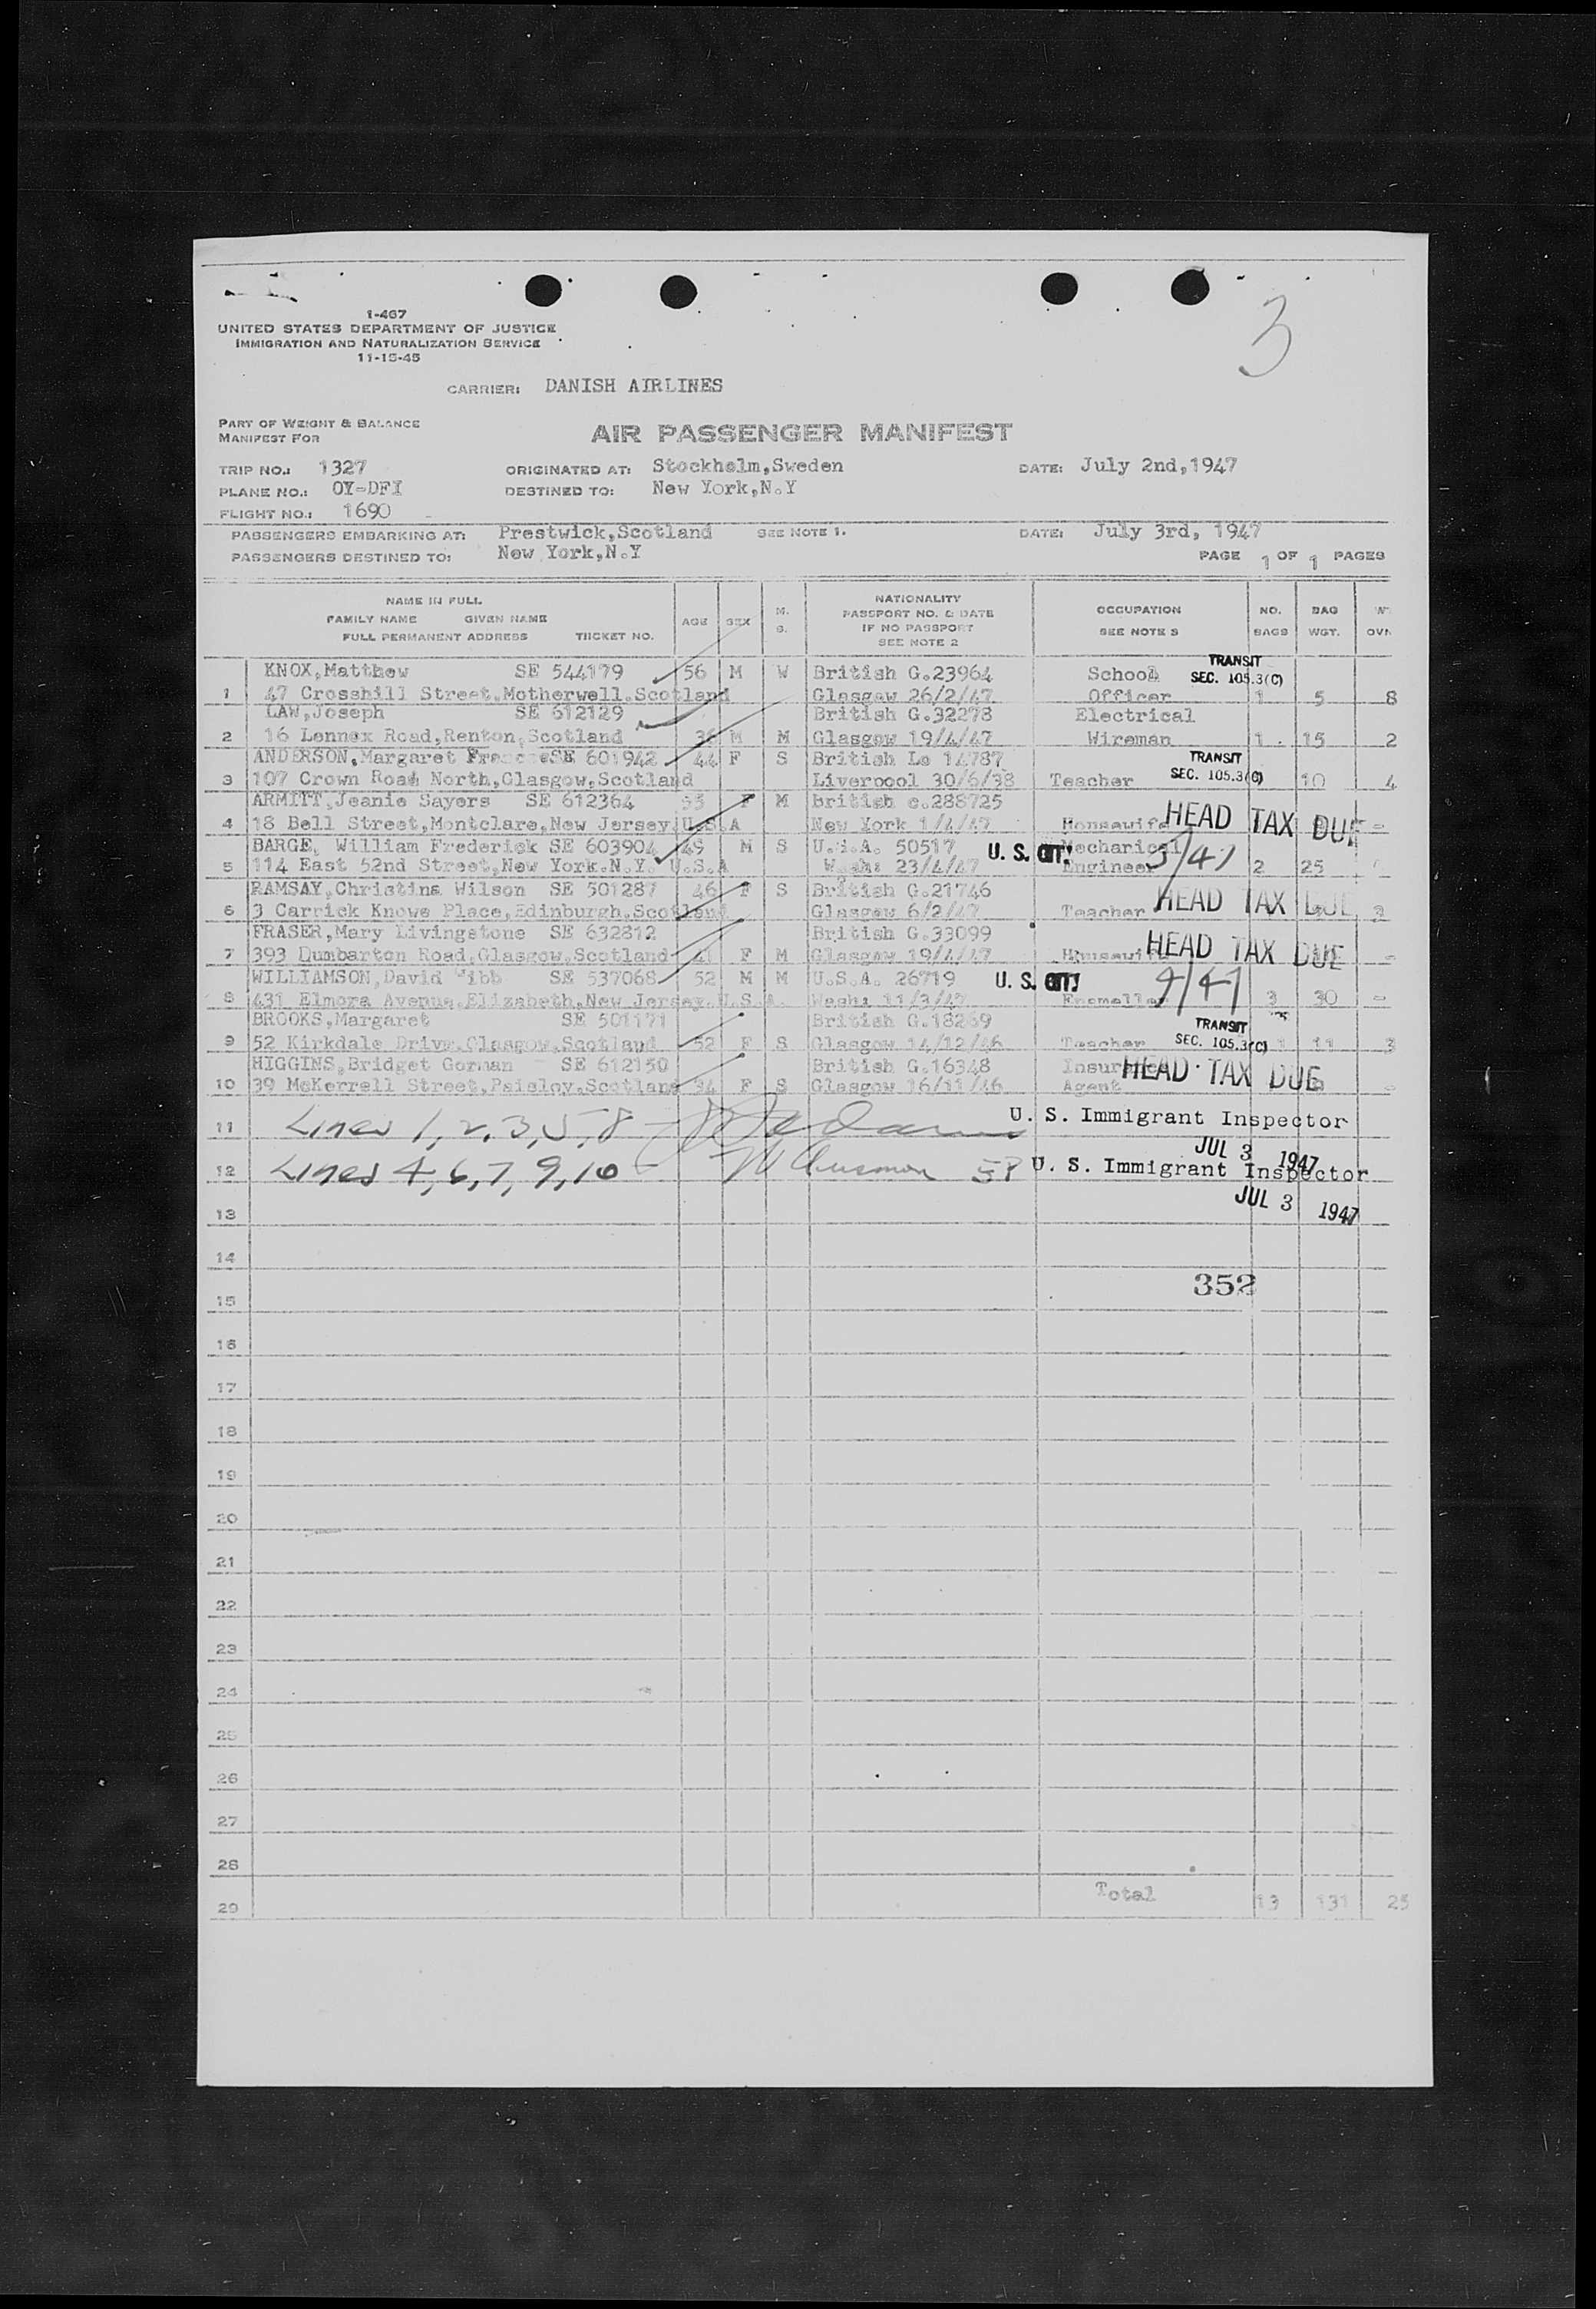 3
1-467
UNITED STATES DEPARTMENT OF JUSTICE
IMMIGRATION AND NATURALIZATION SERVICE
11-15-45
CARRIER: DANISH AIRLINES
PART OF WEIGHT & BALANCE
MANIFEST FOR
AIR PASSENGER MANIFEST
TRIP NO.: 1327 ORIGINATED AT: Stockholm,Sweden DATE: July 2nd,1947
PLANE NO.: OY-DFI DESTINED TO: New York,N.Y
FLIGHT NO.: 1690
PASSENGERS EMBARKING AT: Prestwick,Scotland SEE NOTE 1. DATE: July 3rd, 1947
PASSENGERS DESTINED TO: New York,N.Y PAGE 1 OF 1 PAGES
NAME IN FULL
FAMILY NAME GIVEN NAME
FULL PERMANENT ADDRESS TICKET NO.
AGE SEX M. S.
NATIONALITY
PASSPORT NO. & DATE
IF NO PASSPORT
SEE NOTE 2
OCCUPATION
SEE NOTE 3
NO. BAGS
BAG WGT.
OVR
KNOX,Matthew SE 544179 56 M W British G.23964 School TRANSIT SEC. 105.3(C)
1 47 Crosshill Street,Motherwell,Scotland Glasgow 26/2/47 Officer 1 5 8
LAW,Joseph SE 612129 British G.32278 Electrical
2 16 Lennox Road,Renton,Scotland 36 M M Glasgow 19/4/47 Wireman 1 15 2
ANDERSON,Margaret SE 601942 44 F S British Lo 14787 TRANSIT
3 107 Crown Road North,Glasgow,Scotland Liverpool 30/6/38 Teacher SEC. 105.3(C) 10 4
ARMITT,Jeanie Sayers SE 612364 F M british c.288725
4 18 Bell Street,Montclare,New Jersey,U.S.A New York 1/4/47 Housewife HEAD TAX DUE -
BARGE, William Frederick SE 603904 49 M S U.S.A. 50517 U. S. CIT. Mechanical
5 114 East 52nd Street,New York.N.Y. U.S.A Wash: 23/4/47 Engineer 5/47 2 25
RAMSAY,Christina Wilson SE 501287 46 F S British G.21746
6 3 Carrick Knowe Place,Edinburgh,Scotland Glasgow 6/2/47 Teacher HEAD TAX DUE
FRASER,Mary Livingstone SE 632812 British G.33099
7 393 Dumbarton Road,Glasgow,Scotland 41 F M Glasgow 19/4/47 Housewife HEAD TAX DUE -
WILLIAMSON,David SE 537068 52 M M U.S.A. 26719 U. S. CIT.
8 431 Elmora Avenue,Elizabeth,New Jersey.U.S.A. Wash: 11/3/47 Enameller 4/47 3 30 -
BROOKS,Margaret SE 501171 British G.18269 TRANSIT
9 52 Kirkdale Drive,Glasgow,Scotland 52 F S Glasgow 14/12/46 Teacher SEC. 105.3(C) 1 11 3
HIGGINS,Bridget Gorman SE 612150 British G.16348 Insurance
10 39 McKerrell Street,Paisley,Scotland 34 F S Glasgow 16/11/46 Agent HEAD TAX DUE
11 Lines 1, 2, 3, 5, 8 U. S. Immigrant Inspector
JUL 3 1947
12 Lines 4, 6, 7, 9, 10 U. S. Immigrant Inspector
JUL 3 1947
13
14
352
15
16
17
18
19
20
21
22
23
24
25
26
27
28
29 Total 13 131 25